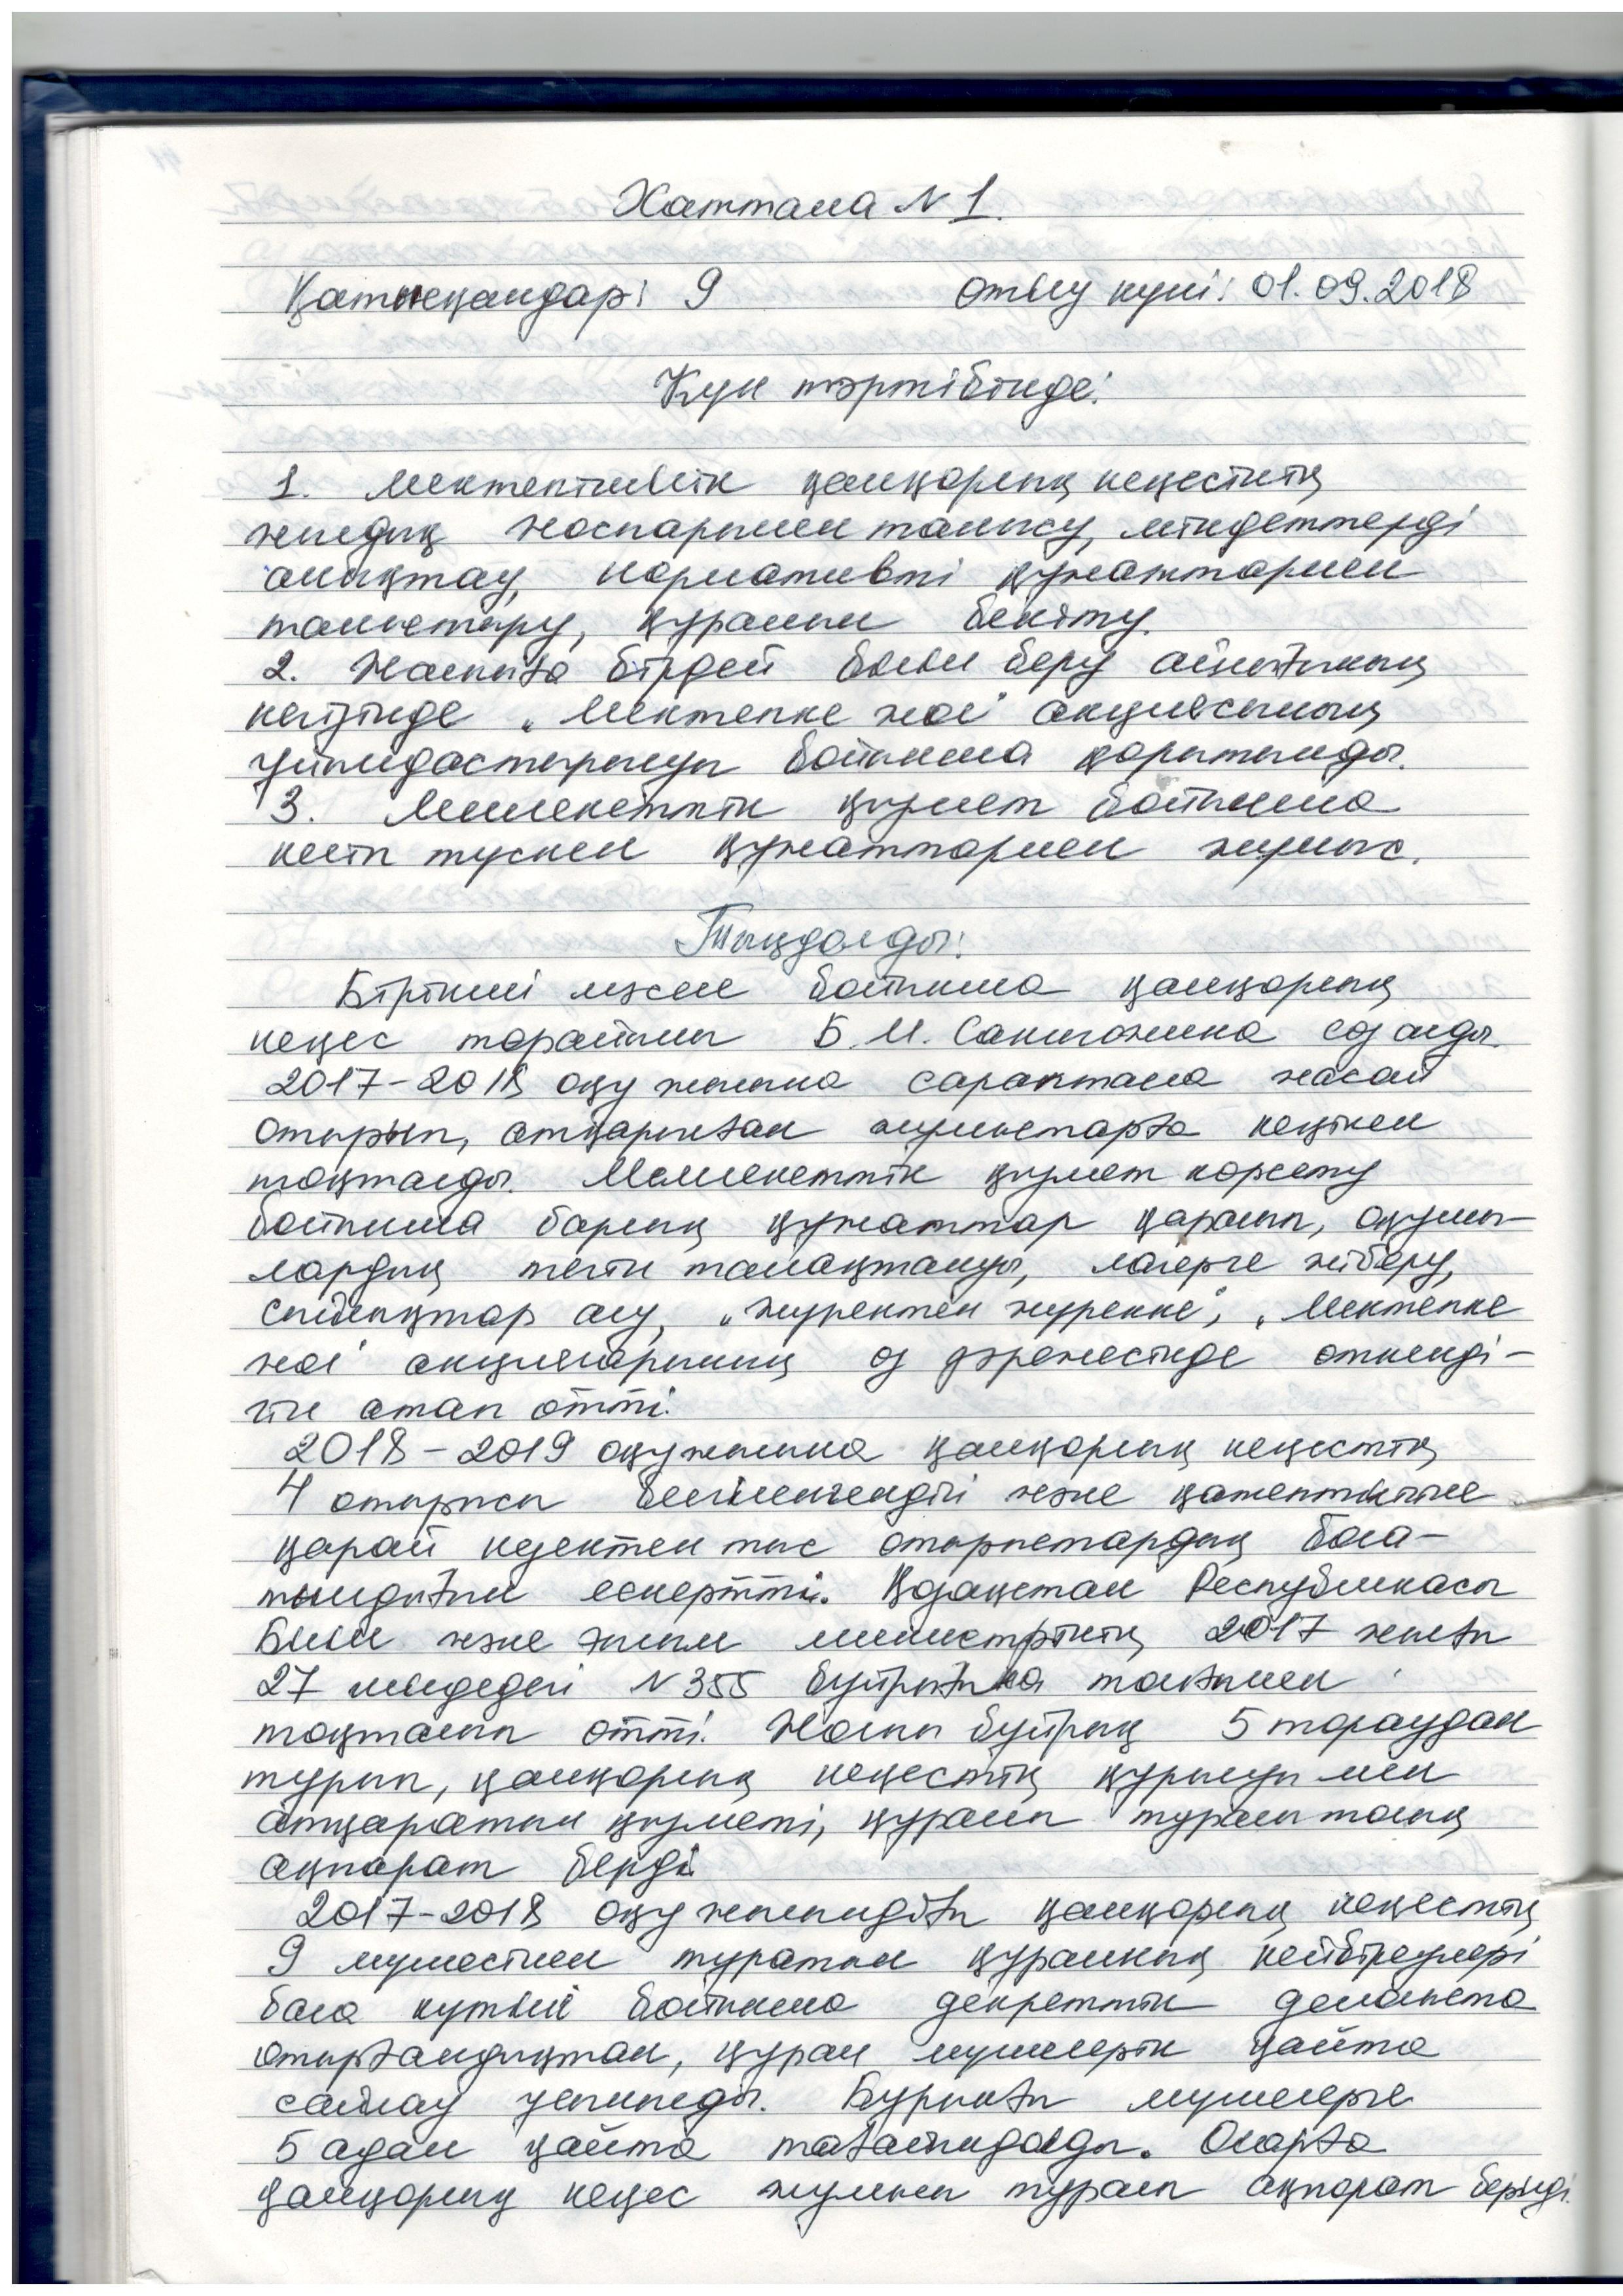 Хаттама № 1.
Қатысқандар: 9 Өткізу күні: 01.09.2018
Күн тәртібінде:
1. Мектепішілік қамқорлық кеңесінің
жылдық жоспарымен танысу, міндеттерді
анықтау, нормативті құжаттармен
таныстыру, құрамын бекіту.
2. Жалпыға бірдей білім беру айлығының
кезінде „Мектепке жол" акциясының
ұйымдастырылуы бойынша қорытынды.
3. Мемлекеттік қызмет бойынша
келіп түскен құжаттармен жұмыс.
Тыңдалды:
Бірінші мәселе бойынша қамқорлық
кеңес төрайымы Б.М. сөз алды.
2017-2018 оқу жылына сараптама жасай
отырып, атқарылған жұмыстарға кеңінен
тоқталды. Мемлекеттік қызмет көрсету
бойынша барлық құжаттар қаралып, оқушы-
лардың тегін тамақтануы, лагерге жіберу,
алу, „Жүректен жүрекке", „Мектепке
жол" акцияларының өз дәрежесінде өткенді-
гін атап өтті.
2018-2019 оқу жылына қамқорлық кеңестің
4 отырысы белгіленгендігі және қажеттілігіне
қарай кезектен тыс отырыстардың бола-
тындығын ескертті. Қазақстан Республикасы
Білім және ғылым министрінің 2017 жылғы
27 шілдедегі № 355 бұйрығына толығымен
тоқталып өтті. Жалпы бұйрық 5 тараудан
тұрып, қамқорлық кеңестің құрылуы мен
атқаратын қызметі, құрамы туралы толық
ақпарат берді.
2017-2018 оқу жылындағы қамқорлық кеңестің
9 мүшесінен тұратын құрамның кейбіреулері
бала күтімі бойынша декреттік демалыста
отырғандықтан, құрам мүшелерін қайта
сайлау ұсынылды. Бұрынғы мүшелерге
5 адам қайта тағайындалды. Оларға
қамқорлық кеңес жұмысы туралы ақпарат берілді.